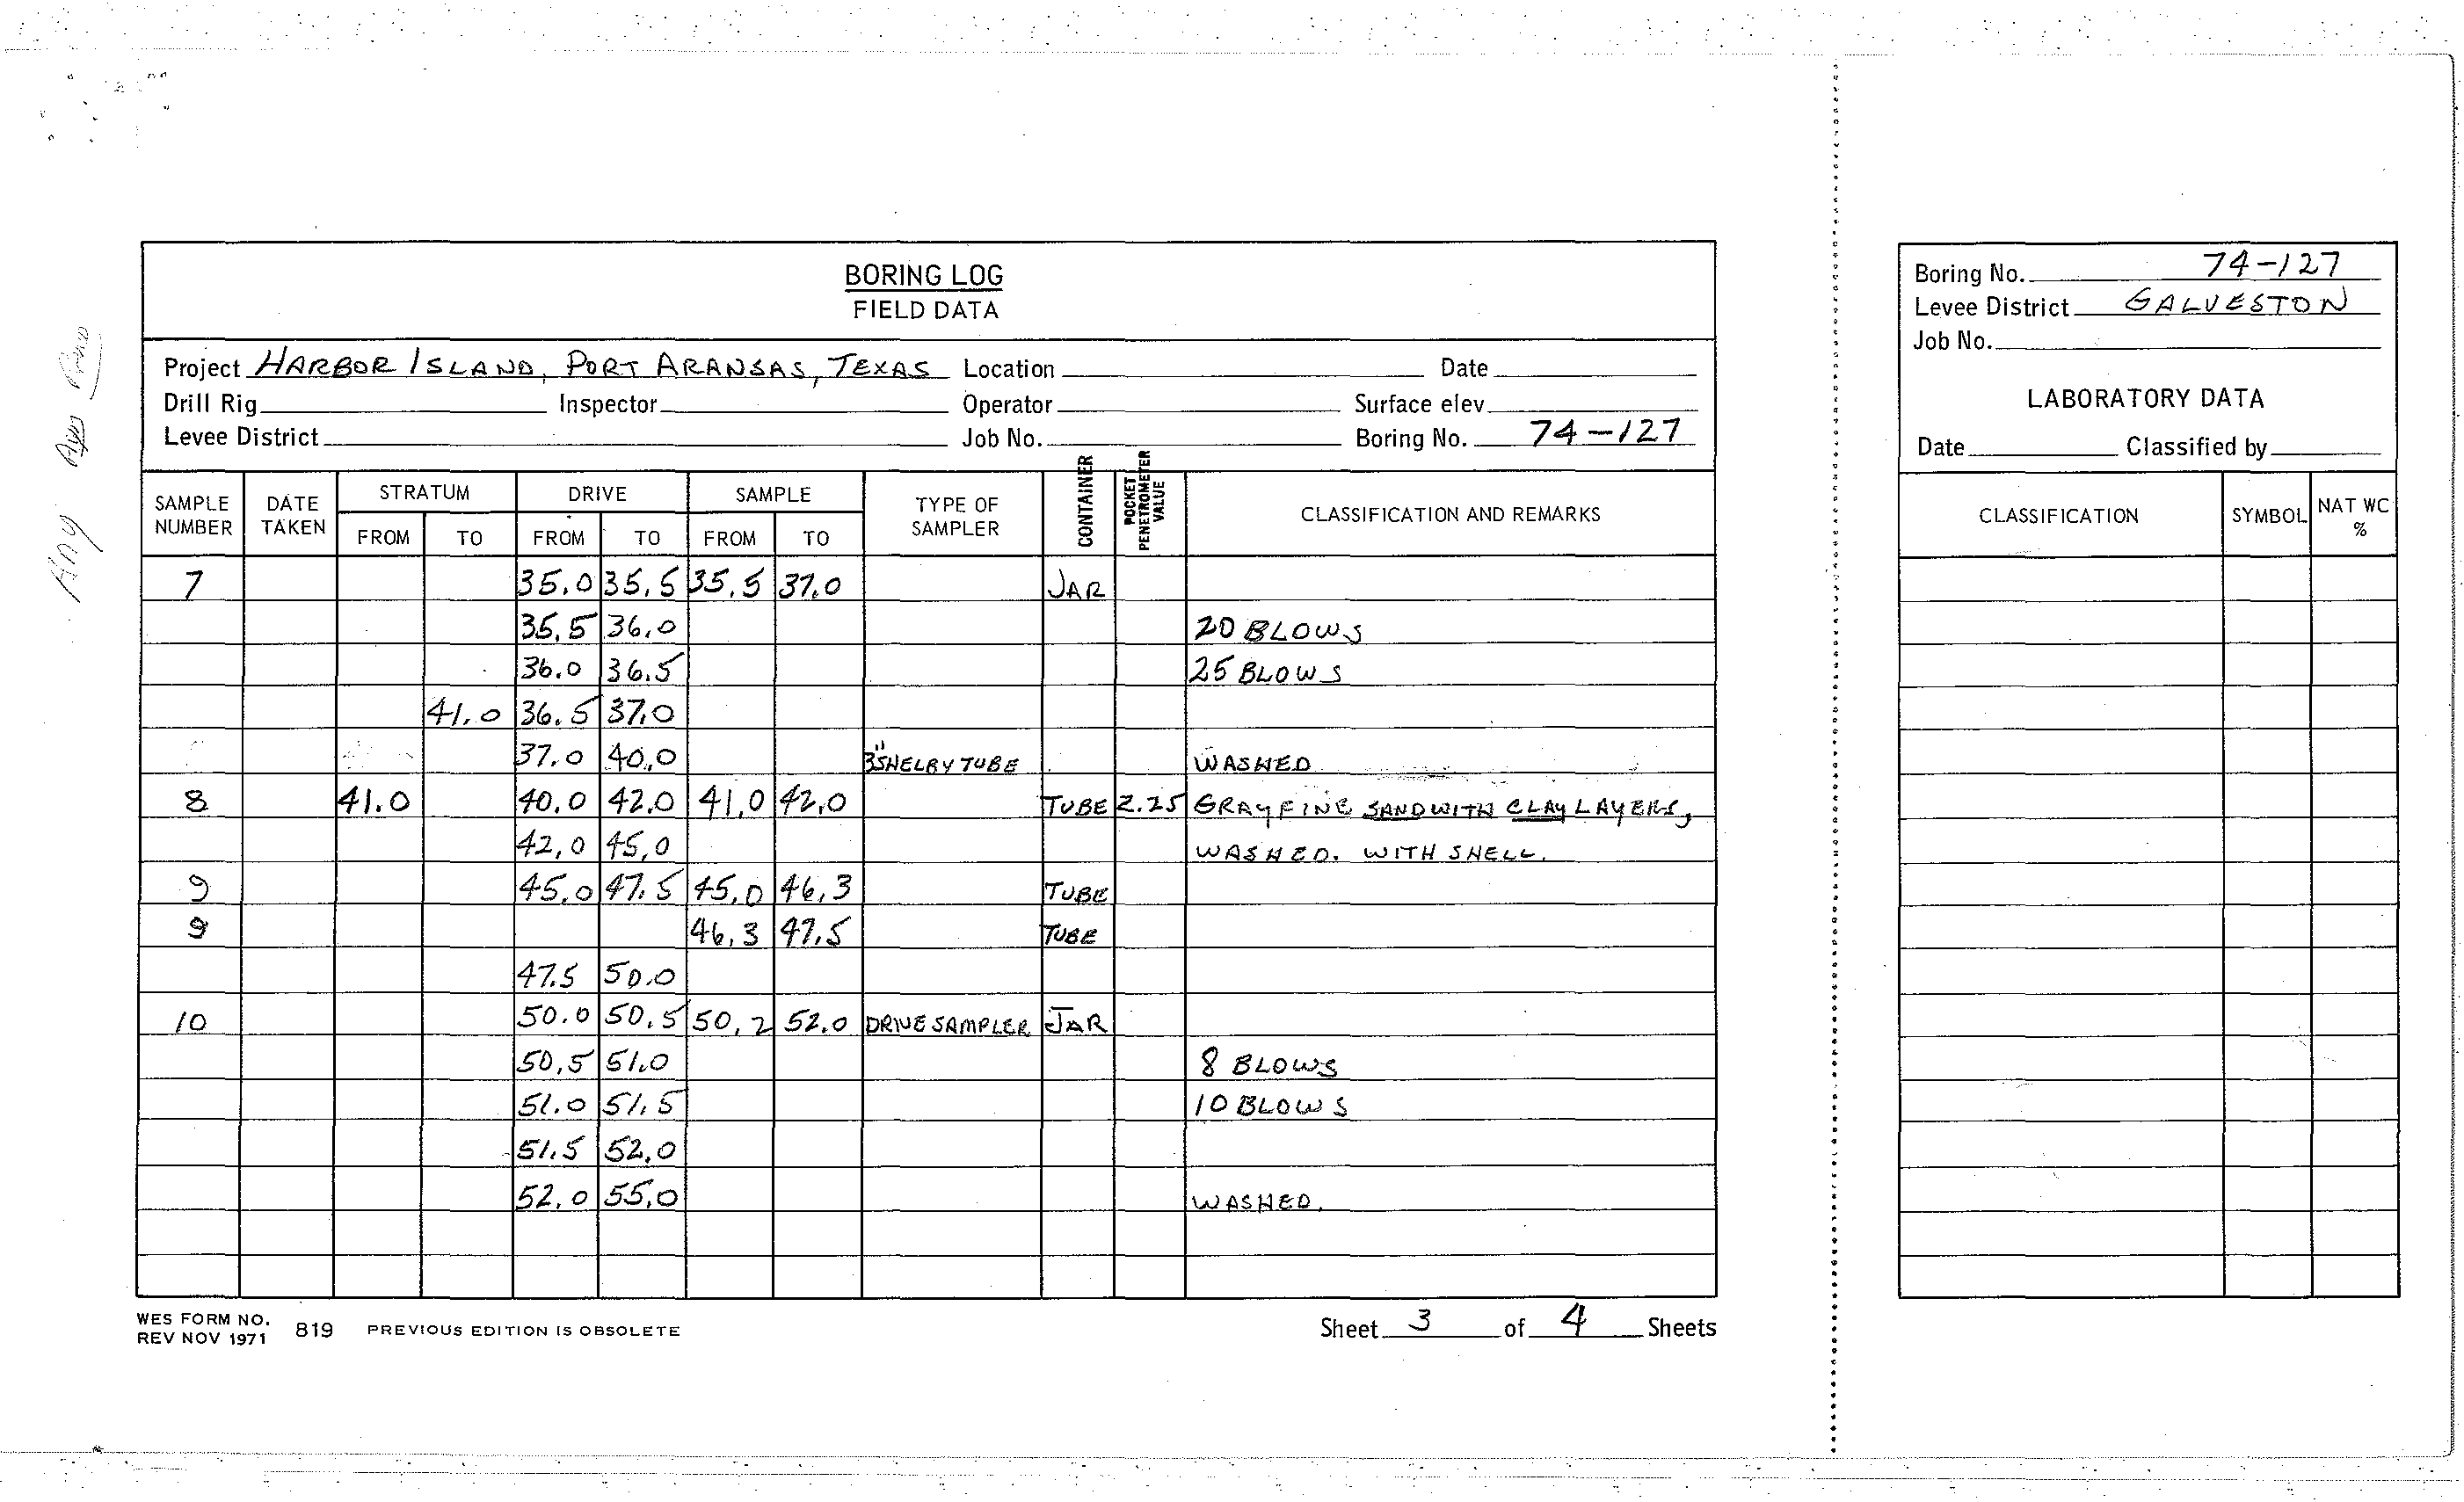 BORING LOG
FIELD DATA
Project HARBOR ISLAND, PORT ARANSAS, TEXAS Location Date
Drill Rig Inspector Operator Surface elev.
Levee District Job No. Boring No. 74-127
SAMPLE NUMBER DATE TAKEN STRATUM FROM TO DRIVE FROM TO SAMPLE FROM TO TYPE OF SAMPLER CONTAINER POCKET PENETROMETER VALUE CLASSIFICATION AND REMARKS
7 35.0 35.5 35.5 37.0 JAR
35.5 36.0 20 BLOWS
36.0 36.5 25 BLOWS
41.0 36.5 37.0
37.0 40.0 3" SHELBY TUBE WASHED
8 41.0 40.0 42.0 41.0 42.0 TUBE 2.25 GRAY FINE SAND WITH CLAY LAYERS,
42.0 45.0 WASHED. WITH SHELL.
9 45.0 47.5 45.0 46.3 TUBE
9 46.3 47.5 TUBE
47.5 50.0
10 50.0 50.5 50.2 52.0 DRIVE SAMPLER JAR
50.5 51.0 8 BLOWS
51.0 51.5 10 BLOWS
51.5 52.0
52.0 55.0 WASHED.
WES FORM NO. 819 PREVIOUS EDITION IS OBSOLETE
REV NOV 1971
Sheet 3 of 4 Sheets
Boring No. 74-127
Levee District GALVESTON
Job No.
LABORATORY DATA
Date Classified by
CLASSIFICATION SYMBOL NAT WC %